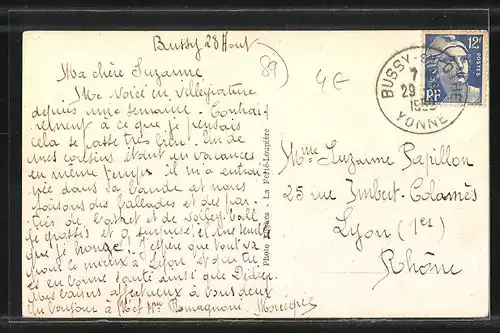 Bussy 28 Aout
Ma chère Suzanne
Me voici en villégiature
depuis une semaine. Contrai-
rement à ce que je pensais
cela se passe très bien. Un de
mes cousins étant en vacances
en même temps il m'a entrai-
née dans sa bande et nous
faisons des ballades et des par-
ties de basket et de volley-ball
je grossis et ô surprise, et une seule
que je bronze. J'espère que tout va
pour le mieux à Lyon et que tu
es en bonne santé ainsi que Didier.
Bons baisers affectueux à vous deux
Un bonjour à Mr et Mme Romagnoni
89
4 €
Photo La Ferté-Loupière
12F
POSTES
RF
BUSSY-
7
29
YONNE
Mme Suzanne Papillon
25 rue Imbert-Colomès
Lyon (1er)
Rhône